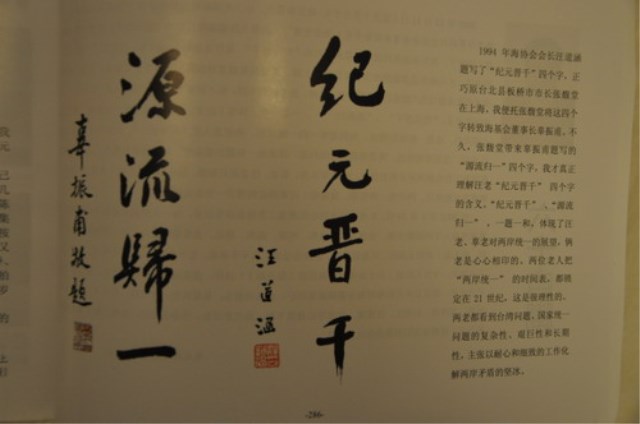 纪元晋千
汪道涵
源流歸一
辜振甫敬题
1994 年海协会会长汪道涵
题写了“纪元晋千”四个字，正
巧原台北县板桥市市长张馥堂
在上海，我便托张馥堂将这四个
字转致海基会董事长辜振甫。不
久，张馥堂带来辜振甫题写的
“源流归一”四个字，我才真正
理解汪老“纪元晋千” 四个字
的含义。“纪元晋千”、“源流
归一” ，一题一和，体现了汪
老、辜老对两岸统一的展望，俩
老是心心相印的。两位老人把
“两岸统一” 的时间表，都锁
定在 21 世纪，这是按理性的。
两老都看到台湾问题、国家统一
问题的复杂性、艰巨性和长期
性，主张以耐心和细致的工作化
解两岸矛盾的坚冰。
-286-